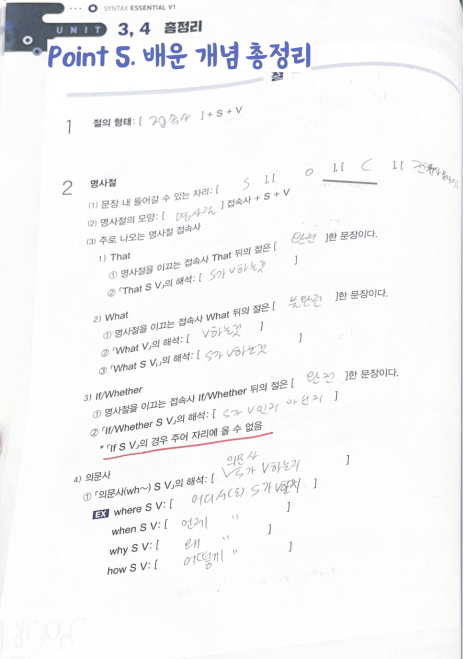 SYNTAX ESSENTIAL V1
UNIT 3, 4 총정리
Point 5. 배운 개념 총정리
절
1 절의 형태: [ 접속사 ] + S + V
2 명사절
(1) 문장 내 들어갈 수 있는 자리: [ S 보 O 보 C 보
(2) 명사절의 모양: [ 명사절 ] 접속사 + S + V
(3) 주로 나오는 명사절 접속사
1) That
① 명사절을 이끄는 접속사 That 뒤의 절은 [ 완전 ]한 문장이다.
② 「That S V」의 해석: [ S가 V하는것 ]
2) What
① 명사절을 이끄는 접속사 What 뒤의 절은 [ 불완전 ]한 문장이다.
② 「What V」의 해석: [ V하는것 ]
③ 「What S V」의 해석: [ S가 V하는것 ]
3) If/Whether
① 명사절을 이끄는 접속사 If/Whether 뒤의 절은 [ 완전 ]한 문장이다.
② 「If/Whether S V」의 해석: [ S가 V인지 아닌지 ]
* 「If S V」의 경우 주어 자리에 올 수 없음
4) 의문사
① 「의문사(wh~) S V」의 해석: [ 의문사 V S가 V하는지 ]
EX where S V: [ 어디서(로) S가 V할지 ]
when S V: [ 언제 " ]
why S V: [ 왜 " ]
how S V: [ 어떻게 " ]